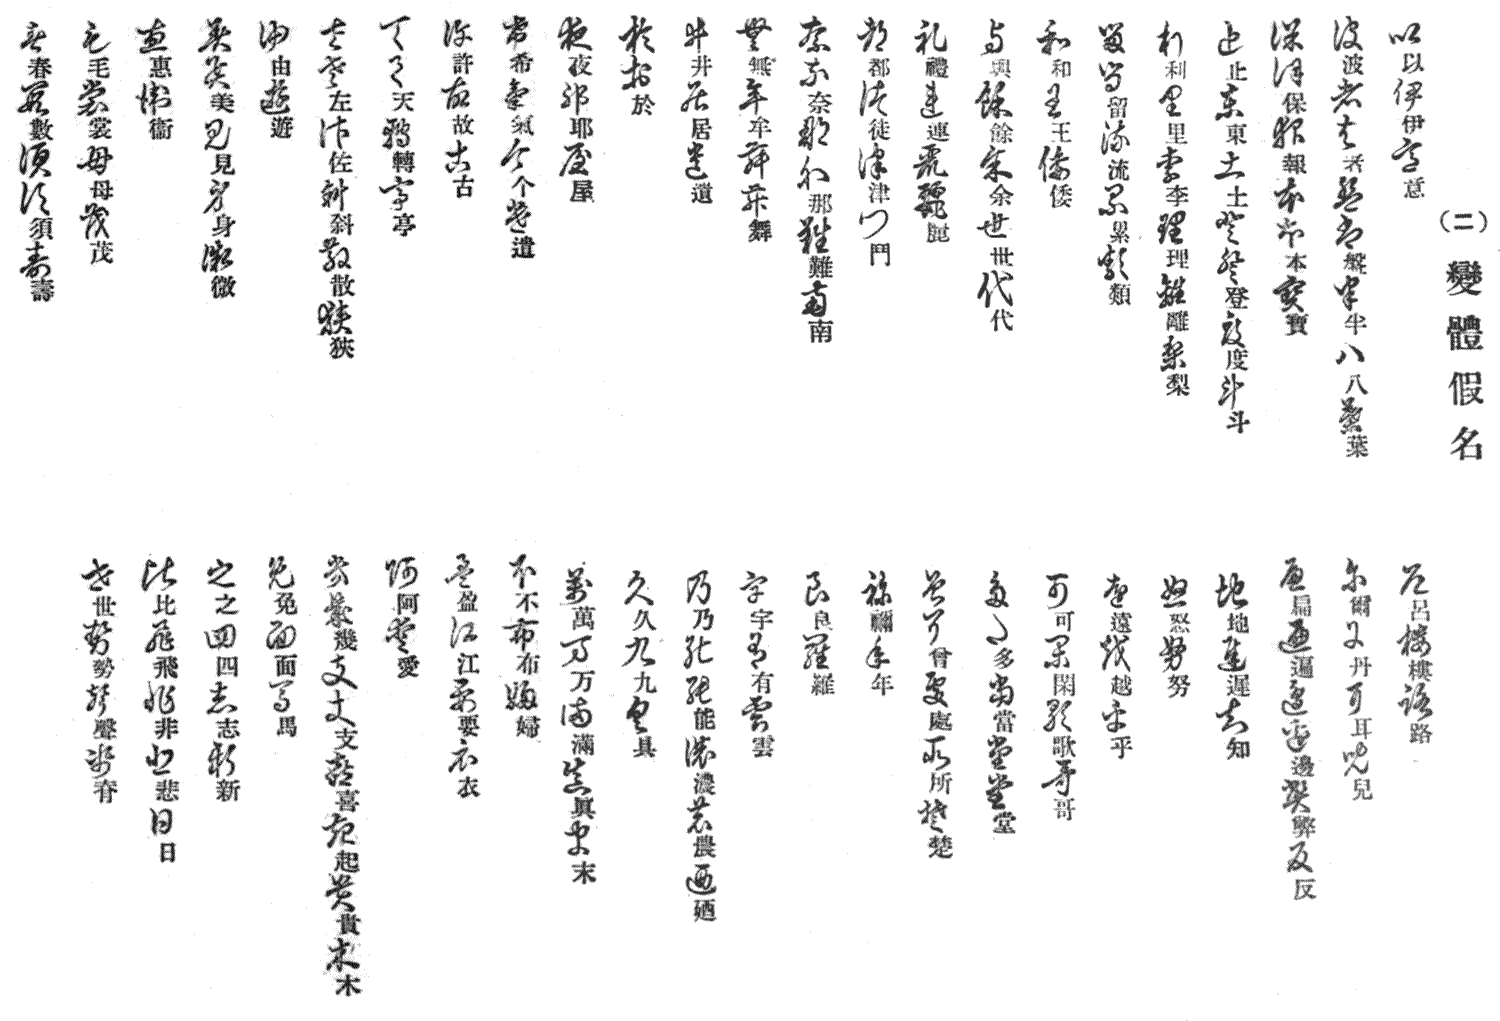 (二)變體假名
以伊意
呂樓路
波者盤半八葉
爾丹耳兒
保報本寶
扁遍邊弊反
止東土登度斗
地遲知
利里李理離梨
怒努
留流累類
遠越乎
和王倭
可閑歌哥
與餘余世代
多當堂
禮連
曾處所楚
都徒津門
禰年
奈那難南
良羅
無牟舞
宇有雲
井居遺
乃能濃農廼
於
久九具
夜耶屋
萬万滿眞末
希氣个遣
不布婦
許故古
盈江要衣
天轉亭
阿愛
左佐斜散狹
幾支喜起貴木
由遊
免面馬
美見身微
之四志新
惠衞
比飛非悲日
毛裳母茂
世勢聲脊
春數須壽